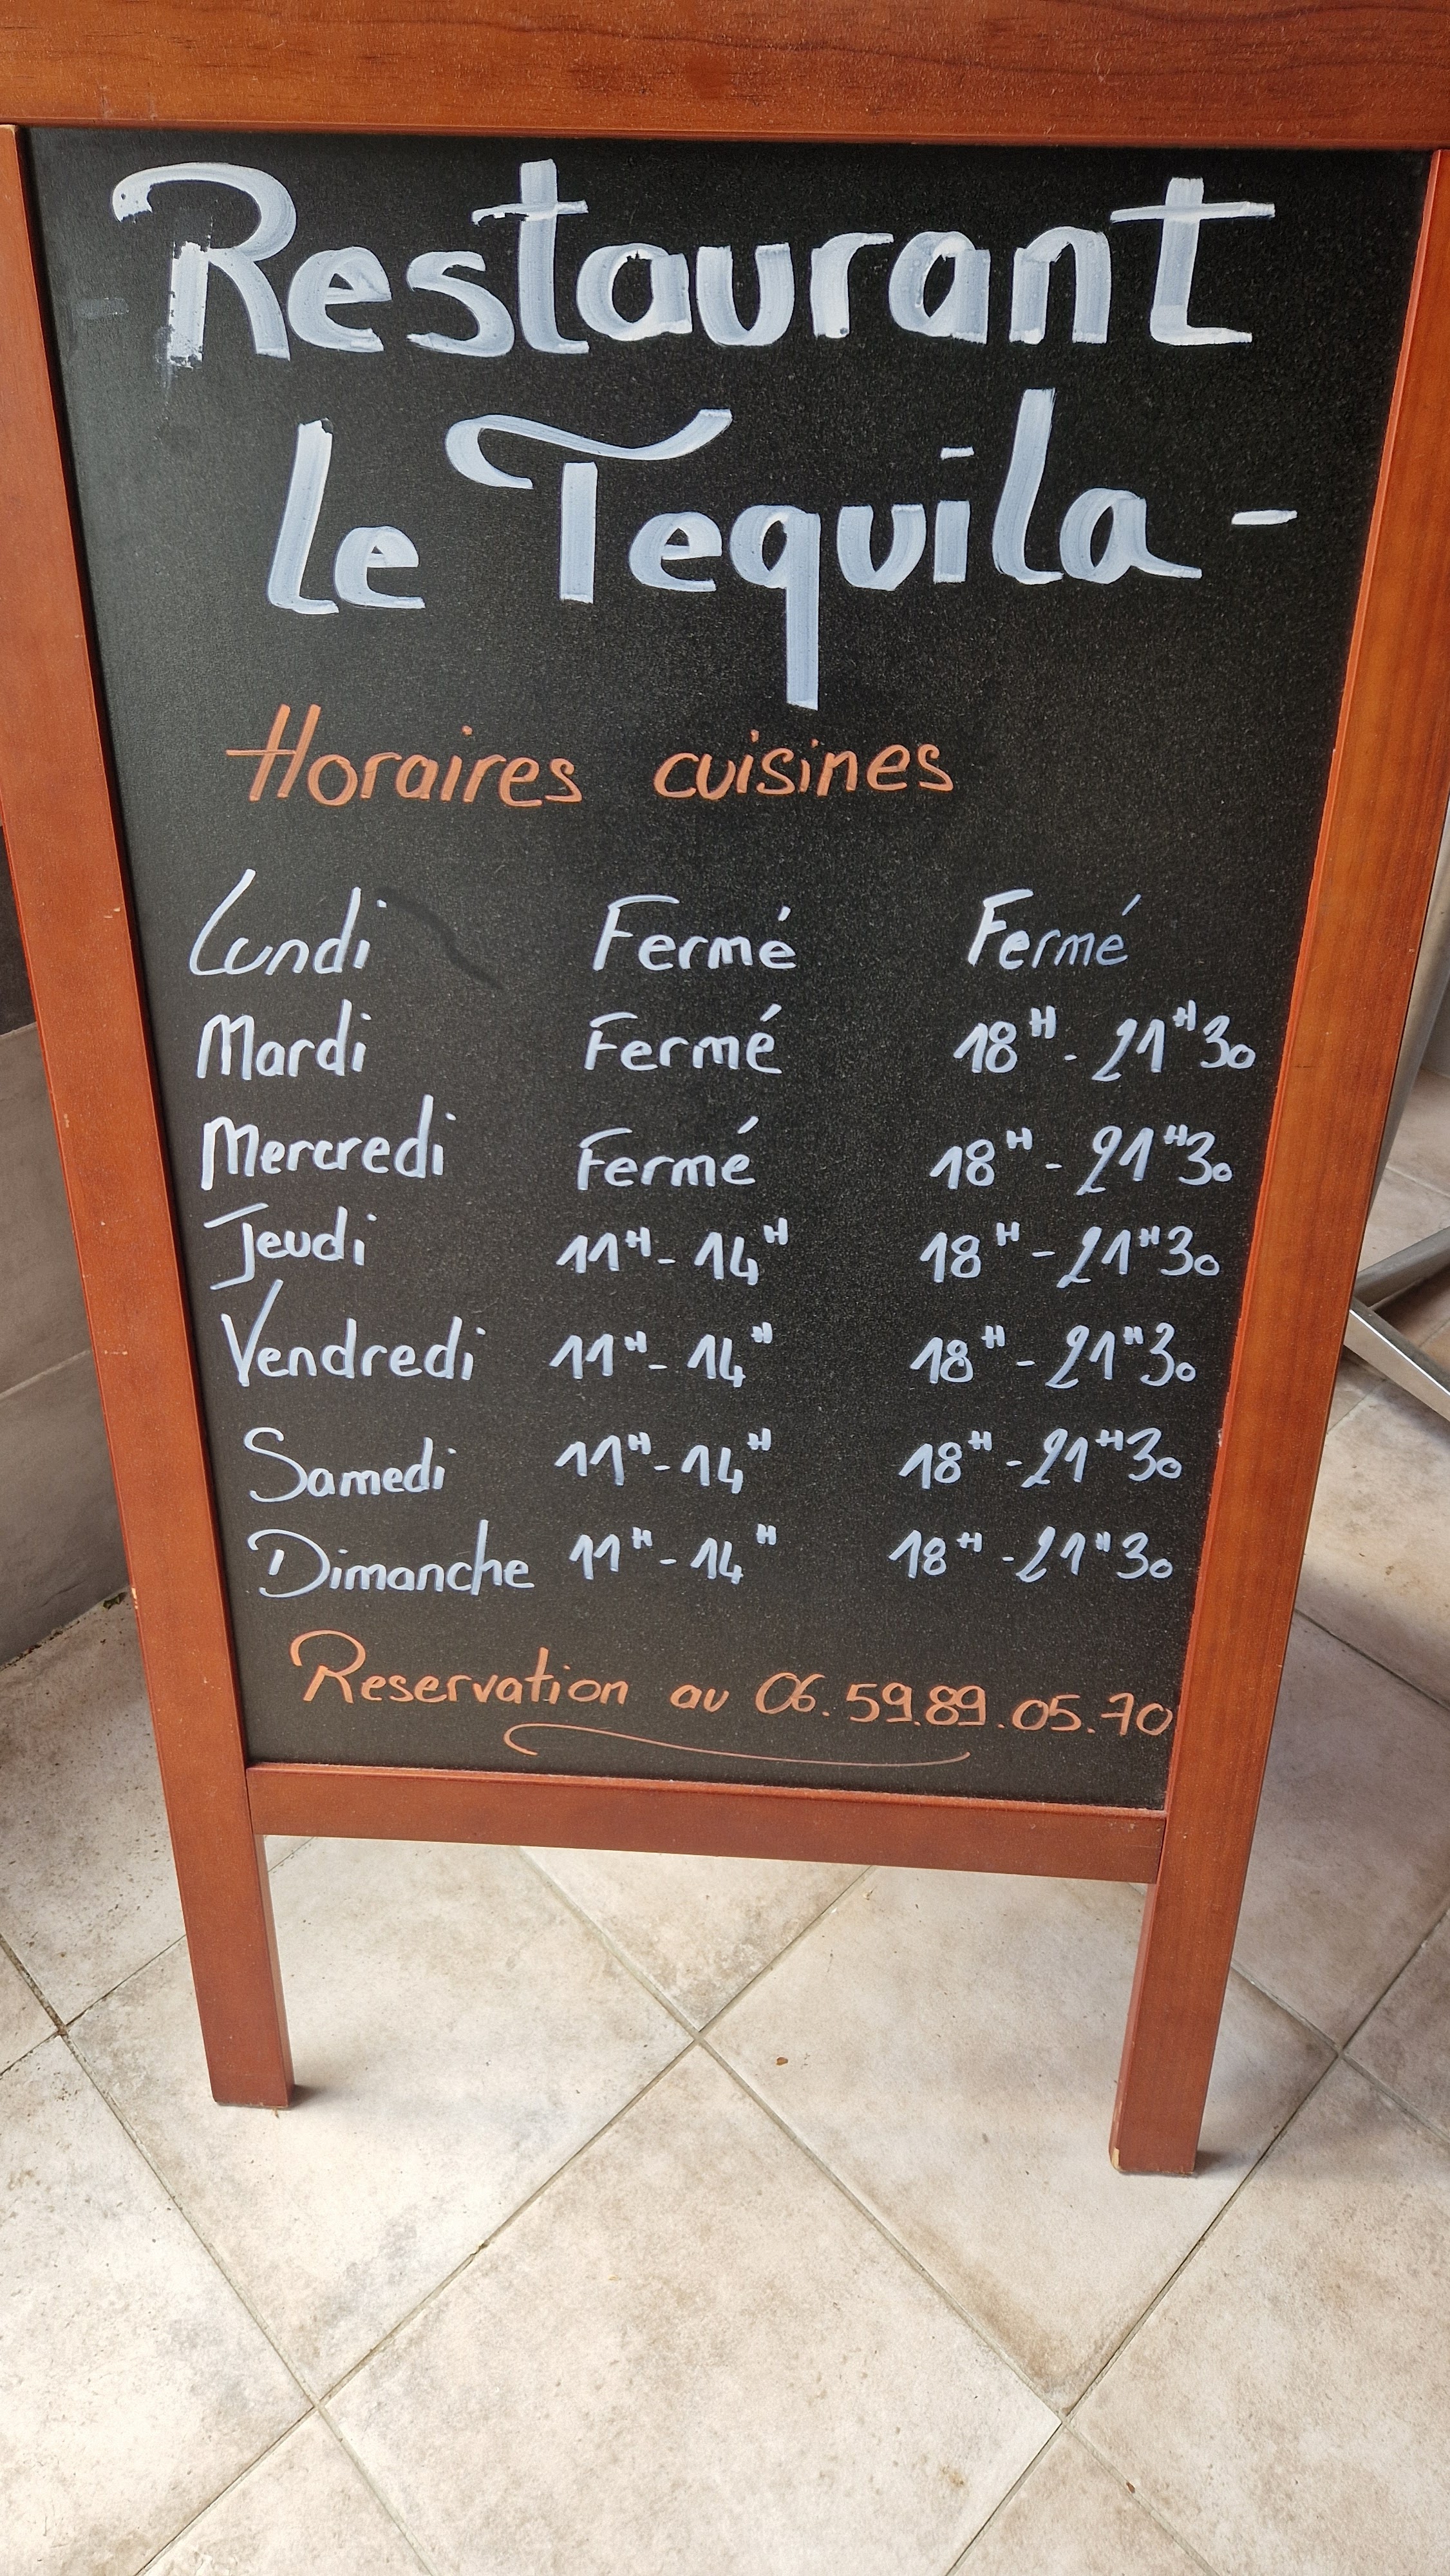 Restaurant
le Tequila -
Horaires cuisines
Lundi Fermé Fermé
Mardi Fermé 18H - 21H30
Mercredi Fermé 18H - 21H30
Jeudi 11H - 14H 18H - 21H30
Vendredi 11H - 14H 18H - 21H30
Samedi 11H - 14H 18H - 21H30
Dimanche 11H - 14H 18H - 21H30
Reservation au 06.59.89.05.70